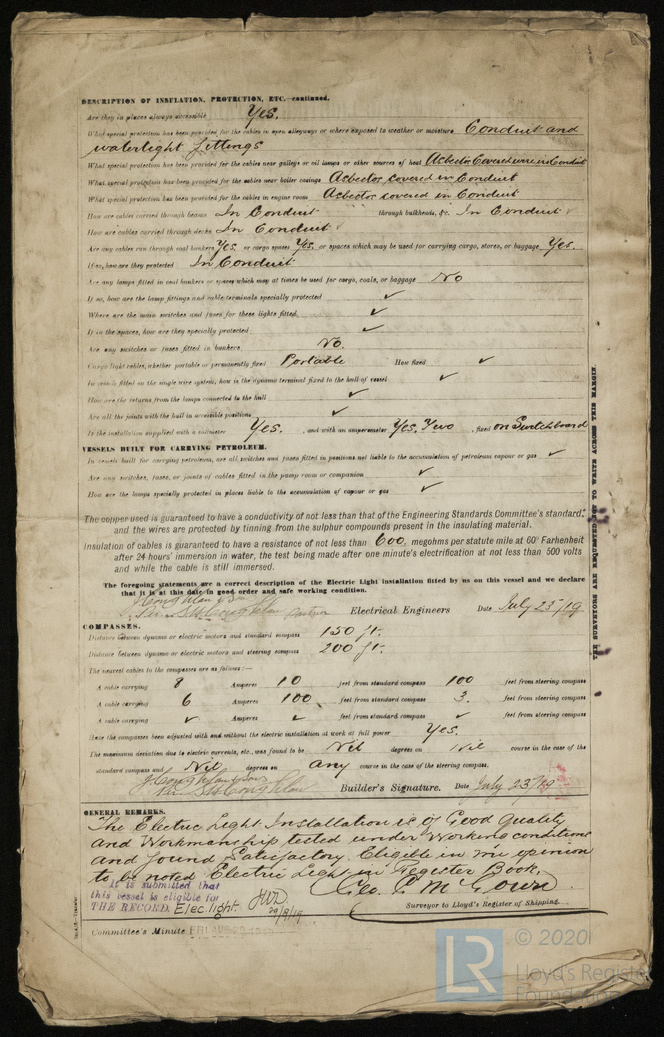 DESCRIPTION OF INSULATION, PROTECTION, ETC.—continued.
Are they in places always accessible Yes.
What special protection has been provided for the cables in open alleyways or where exposed to weather or moisture Conduit and
watertight fittings
What special protection has been provided for the cables near galleys or oil lamps or other sources of heat Asbestos Covered wire in Conduit
What special protection has been provided for the cables near boiler casings Asbestos covered in Conduit
What special protection has been provided for the cables in engine room Asbestos covered in Conduit
How are cables carried through beams In Conduit through bulkheads, &c. In Conduit ✓
How are cables carried through decks In Conduit ✓
Are any cables run through coal bunkers Yes. or cargo spaces Yes. or spaces which may be used for carrying cargo, stores, or baggage Yes.
If so, how are they protected In Conduit
Are any lamps fitted in coal bunkers or spaces which may at times be used for cargo, coals, or baggage No
If so, how are the lamp fittings and cable terminals specially protected ✓
Where are the main switches and fuses for these lights fitted ✓
If in the spaces, how are they specially protected ✓
Are any switches or fuses fitted in bunkers No.
Cargo light cables, whether portable or permanently fixed Portable How fixed ✓
In vessels fitted on the single wire system, how is the dynamo terminal fixed to the hull of vessel ✓
How are the returns from the lamps connected to the hull ✓
Are all the joints with the hull in accessible positions ✓
Is the installation supplied with a voltmeter Yes. , and with an amperemeter Yes, Two , fixed on Switchboard
VESSELS BUILT FOR CARRYING PETROLEUM.
In vessels built for carrying petroleum, are all switches and fuses fitted in positions not liable to the accumulation of petroleum vapour or gas ✓
Are any switches, fuses, or joints of cables fitted in the pump room or companion ✓
How are the lamps specially protected in places liable to the accumulation of vapour or gas ✓
The copper used is guaranteed to have a conductivity of not less than that of the Engineering Standards Committee's standard,
and the wires are protected by tinning from the sulphur compounds present in the insulating material.
Insulation of cables is guaranteed to have a resistance of not less than 600. megohms per statute mile at 60° Farhenheit
after 24 hours' immersion in water, the test being made after one minute's electrification at not less than 500 volts
and while the cable is still immersed.
The foregoing statements are a correct description of the Electric Light installation fitted by us on this vessel and we declare
that it is at this date in good order and safe working condition.
J. Coughlan & Sons
Per Coughlan Partner Electrical Engineers Date July 23/19
COMPASSES.
Distance between dynamo or electric motors and standard compass 150 ft.
Distance between dynamo or electric motors and steering compass 200 ft.
The nearest cables to the compasses are as follows:—
A cable carrying 8 Amperes 10 feet from standard compass 100 feet from steering compass
A cable carrying 6 Amperes 100 feet from standard compass 3. feet from steering compass
A cable carrying ✓ Amperes ✓ feet from standard compass ✓ feet from steering compass
Have the compasses been adjusted with and without the electric installation at work at full power Yes.
The maximum deviation due to electric currents, etc., was found to be Nil degrees on Nil course in the case of the
standard compass and Nil degrees on any course in the case of the steering compass.
J. Coughlan & Sons
Per Coughlan Builder's Signature. Date July 23/19
GENERAL REMARKS.
The Electric Light Installation is of Good Quality
and Workmanship tested under Working conditions
and found Satisfactory. Eligible in my opinion
to be noted Electric Light in Register Book.
It is submitted that
this vessel is eligible for
THE RECORD. Elec. light. 29/8/19
Geo. P. McGown
Surveyor to Lloyd's Register of Shipping.
Committee's Minute FRI. AUG 29 1919
THE SURVEYORS ARE REQUESTED NOT TO WRITE ACROSS THIS MARGIN.
LR © 2020
Lloyd's Register
Foundation